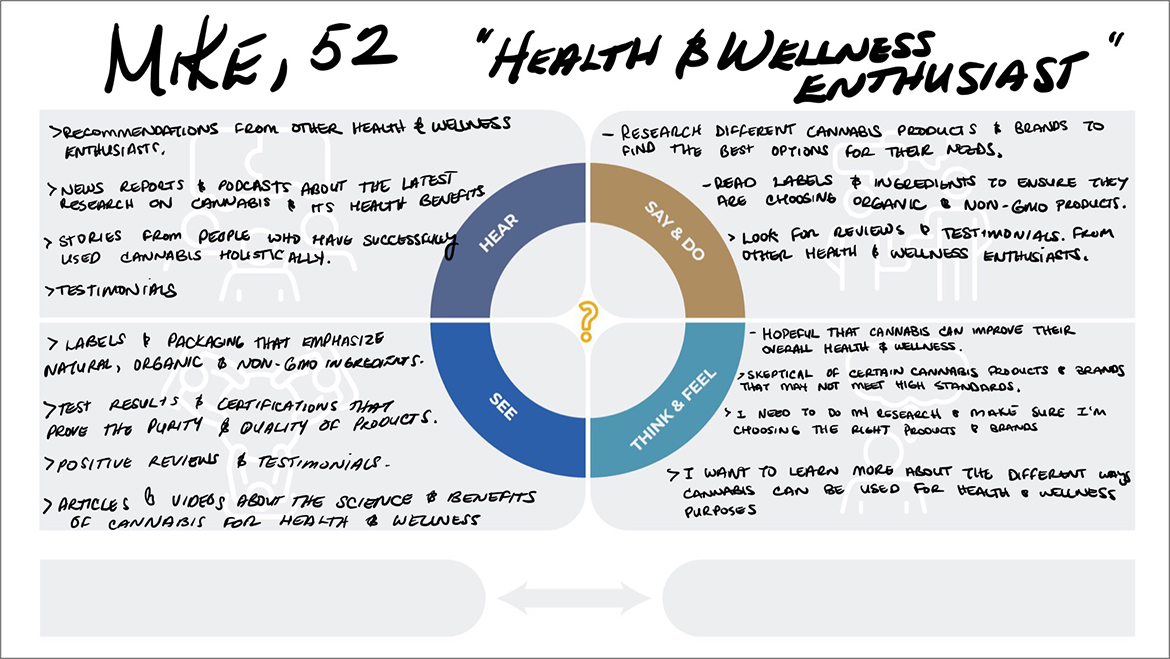 MIKE, 52
"HEALTH & WELLNESS
ENTHUSIAST"
>RECOMMENDATIONS FROM OTHER HEALTH & WELLNESS
ENTHUSIASTS.
>NEWS REPORTS & PODCASTS ABOUT THE LATEST
RESEARCH ON CANNABIS & ITS HEALTH BENEFITS
> STORIES FROM PEOPLE WHO HAVE SUCCESSFULLY
USED CANNABIS HOLISTICALLY.
>TESTIMONIALS
HEAR
- RESEARCH DIFFERENT CANNABIS PRODUCTS & BRANDS TO
FIND THE BEST OPTIONS FOR THEIR NEEDS.
-READ LABELS & INGREDIENTS TO ENSURE THEY
ARE CHOOSING ORGANIC & NON-GMO PRODUCTS.
> LOOK FOR REVIEWS & TESTIMONIALS. FROM
OTHER HEALTH & WELLNESS ENTHUSIASTS.
SAY & DO
?
> LABELS & PACKAGING THAT EMPHASIZE
NATURAL, ORGANIC & NON-GMO INGREDIENTS.
>TEST RESULTS & CERTIFICATIONS THAT
PROVE THE PURITY & QUALITY OF PRODUCTS.
>POSITIVE REVIEWS & TESTIMONIALS.
>ARTICLES & VIDEOS ABOUT THE SCIENCE & BENEFITS
OF CANNABIS FOR HEALTH & WELLNESS
SEE
- HOPEFUL THAT CANNABIS CAN IMPROVE THEIR
OVERALL HEALTH & WELLNESS.
>SKEPTICAL OF CERTAIN CANNABIS PRODUCTS & BRANDS
THAT MAY NOT MEET HIGH STANDARDS.
> I NEED TO DO MY RESEARCH & MAKE SURE I'M
CHOOSING THE RIGHT PRODUCTS & BRANDS
> I WANT TO LEARN MORE ABOUT THE DIFFERENT WAYS
CANNABIS CAN BE USED FOR HEALTH & WELLNESS
PURPOSES
THINK & FEEL